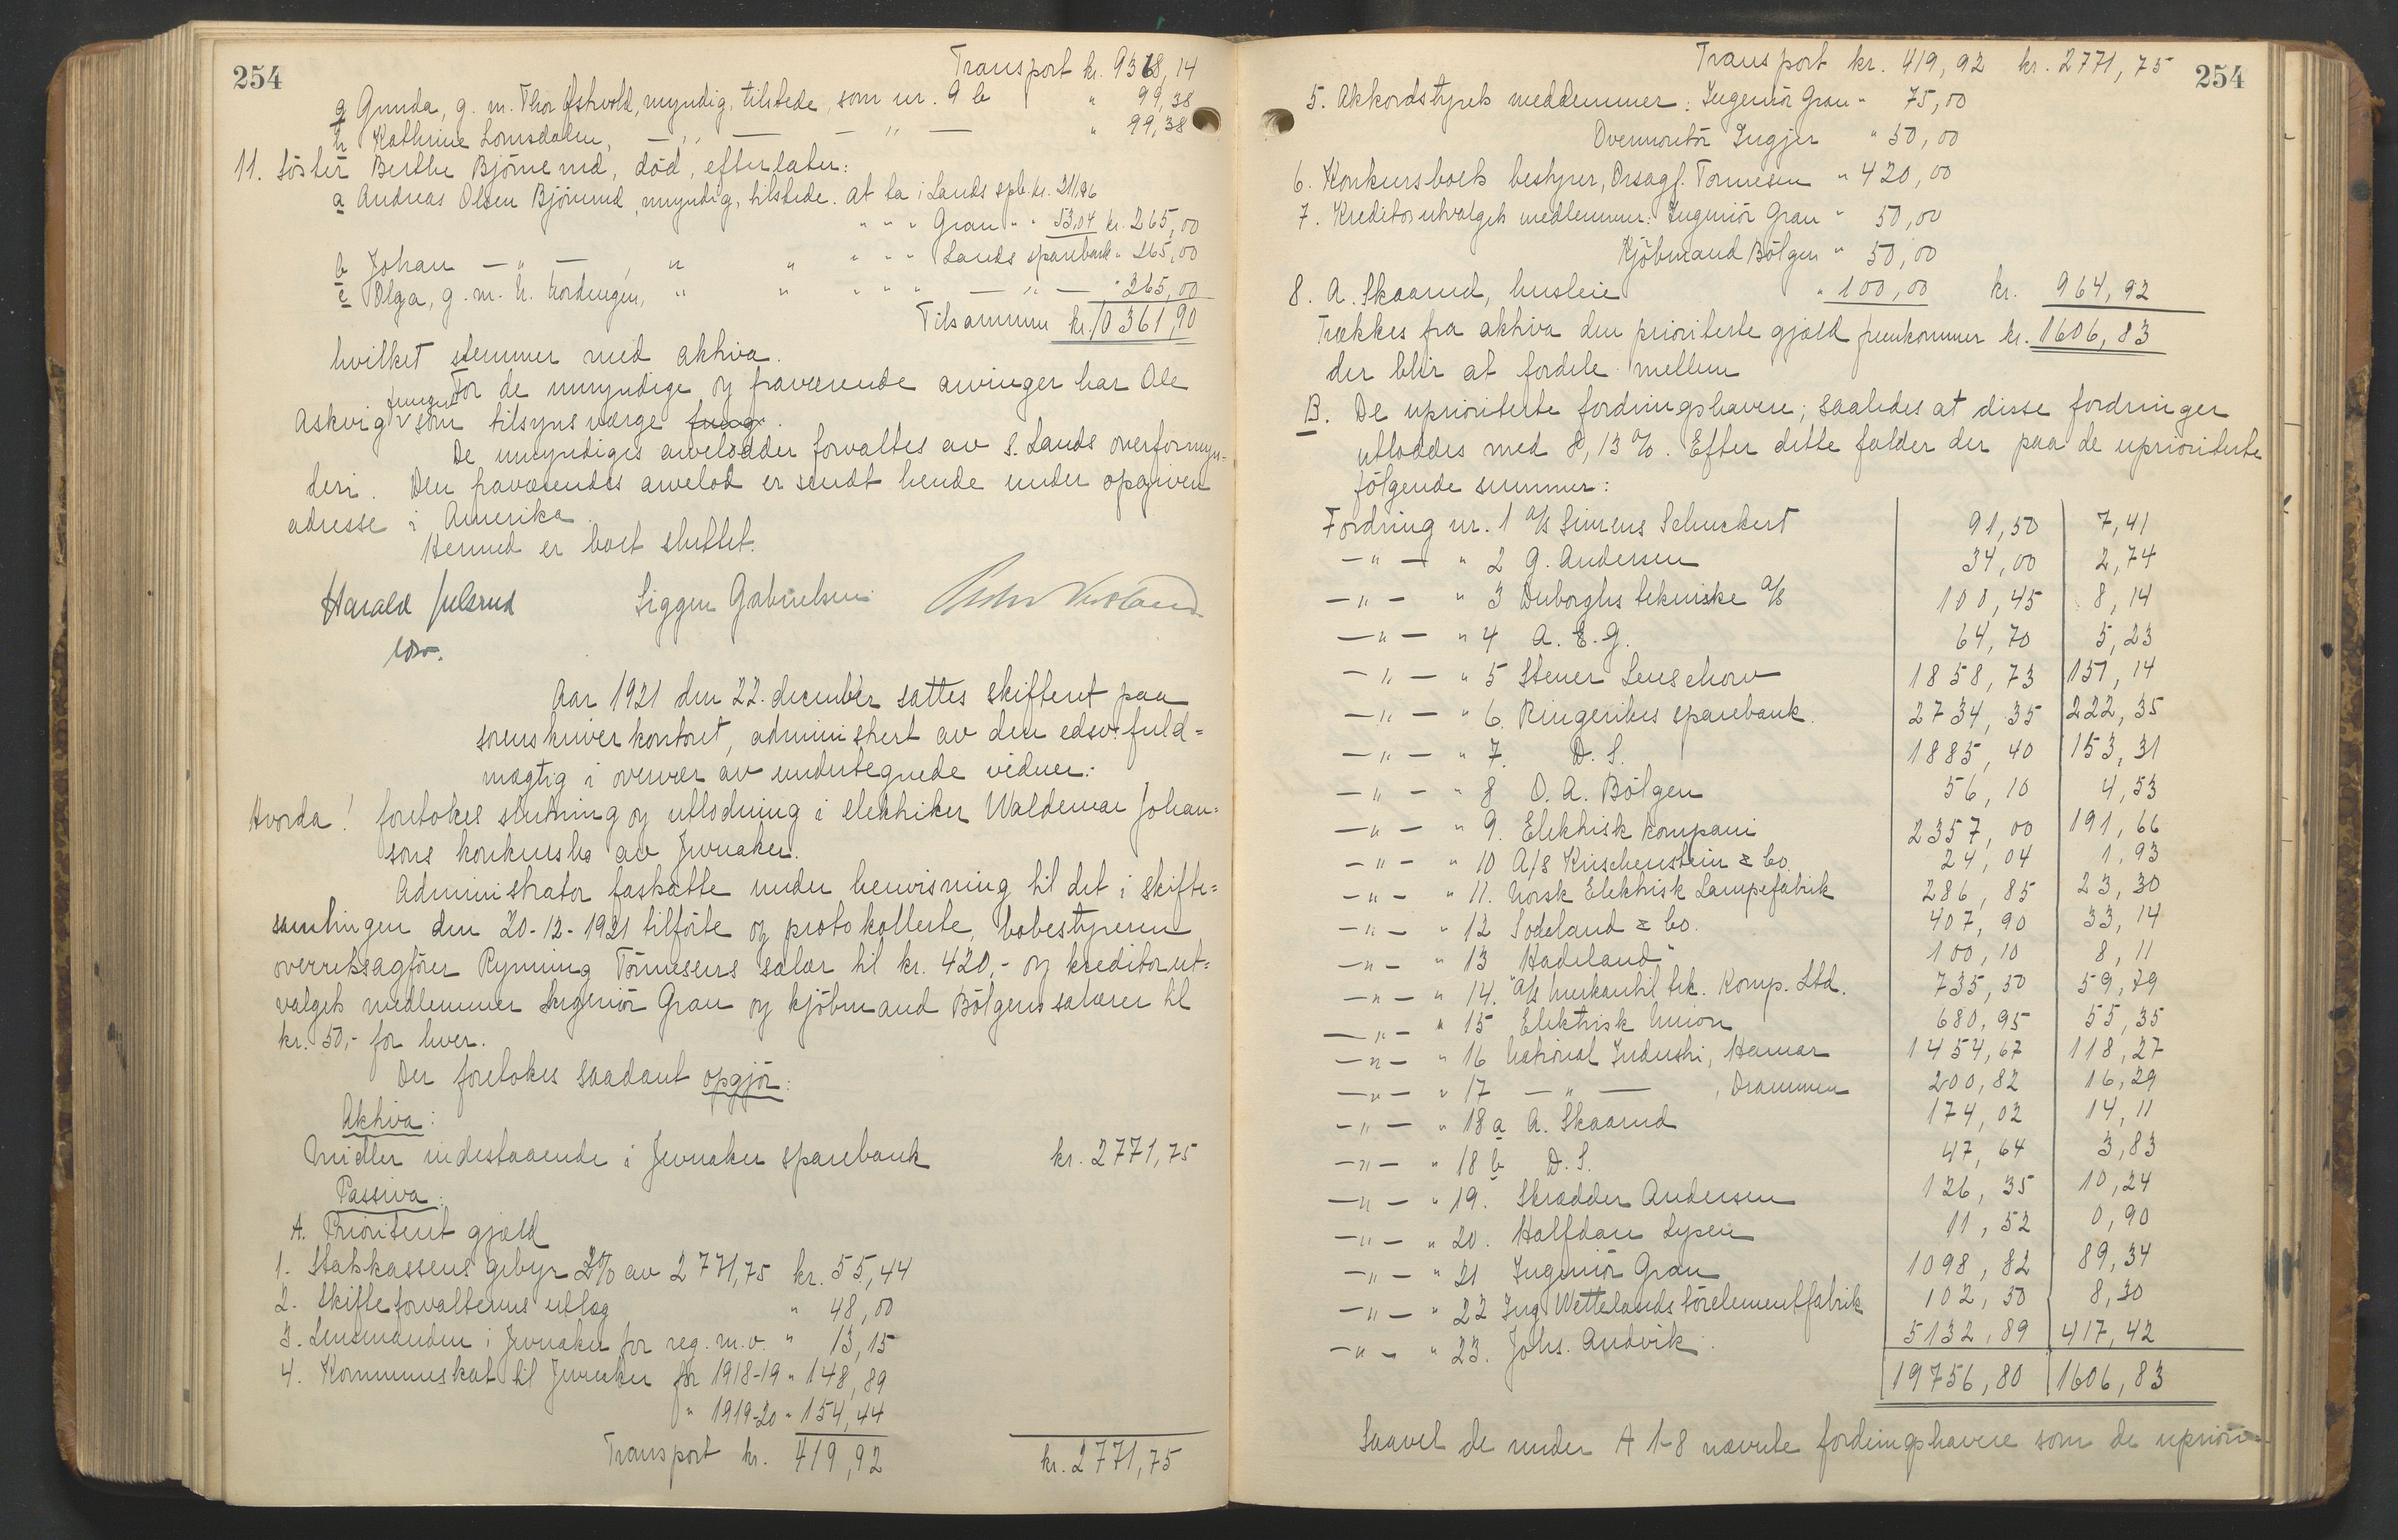 254
Transport kr. 9368,14
g Gunda, g. m. Thor Østvold, myndig, tilstede, som nr. 9 b " 99,38
h Kathrine Lomsdalen, —„— —„— " 99,38
11. Söster Berthe Bjönerud, död, efterlater:
a Andreas Olsen Bjönerud, myndig, tilstede. At ta i Lands spb. kr. 211,96
" " " Gran " " 53,04 kr. 265,00
b Johan —„—, " " " " " Lands sparebank " 265,00
c Olga, g. m. N. Nordengen, " " " " " —„— " 265,00
Tilsammen kr. 10361,90
hvilket stemmer med aktiva.
For de umyndige og fraværende arvinger har Ole
Askvig fungert som tilsynsværge fung.
De umyndiges arvelodder forvaltes av S. Lands overformyn=
deri. Den fraværendes arvelod er sendt hende under opgiven
adresse i Amerika.
Hermed er boet sluttet.
Harald Julsrud Siggen Gabrielsen
Aar 1921 den 22. december sattes skifteret paa
sorenskriverkontoret, administrert av den edsv. fuld=
mægtig i overvær av undertegnede vidner:
Hvorda! foretokes slutning og utlodning i elektriker Waldemar Johan=
sons konkursbo av Jevnaker.
Administrator fastsatte under henvisning til det i skifte=
samlingen den 20-12-1921 tilförte og protokollerte, bobestyreren
overretssagförer Ryming Tönnesens salær til kr. 420,- og kreditorut=
valgets medlemmer Ingeniör Gran og kjöbmand Bölgens salærer til
kr. 50,- for hver.
Der foretokes saadant opgjör:
Aktiva:
Midler indestaaende i Jevnaker sparebank kr. 2771,75
Passiva:
A. Prioritert gjæld
1. Statskassens gebyr 2% av 2771,75 kr. 55,44
2. Skifteforvalterens utlæg " 48,00
3. Lensmanden i Jevnaker for reg. m.v. " 13,15
4. Kommuneskat til Jevnaker for 1918-19 " 148,89
" 1919-20 " 154,44
Transport kr. 419,92 kr. 2771,75
Transport kr. 419,92 kr. 2771,75
254
5. Akkordstyrets medlemmer: Ingeniör Gran " 75,00
Overmontör Ingjer " 50,00
6. Konkursboets bestyrer, Orsagf. Tönnesen " 420,00
7. Kreditorutvalgets medlemmer: Ingeniör Gran " 50,00
Kjöbmand Bölgen " 50,00
8. A. Skaarud, husleie " 100,00 kr. 964,92
Trækkes fra aktiva den prioriterte gjæld fremkommer kr. 1606,83
der blir at fordele mellem
B. De uprioriterte fordringshavere, saaledes at disse fordringer
utloddes med 8,13 %. Efter dette falder der paa de uprioriterte
fölgende summer:
Fordring nr. 1 A/S Simens Schuckert 91,50 7,41
—„— " 2 G. Andersen 34,00 2,74
—„— " 3 Duborghs tekniske A/S 100,45 8,14
—„— " 4 A.E.G. 64,70 5,23
—„— " 5 Stener Lenschow 1858,73 151,14
—„— " 6. Ringerikes sparebank. 2734,35 222,35
—„— " 7. D. S. 1885,40 153,31
—„— " 8 O. A. Bölgen 56,10 4,53
—„— " 9. Elektrisk kompani 2357,00 191,66
—„— " 10 A/S Krischenstein & Co. 24,04 1,93
—„— " 11. Norsk Elektrisk Lampefabrik 286,85 23,30
—„— " 12 Sodeland & Co. 407,90 33,14
—„— " 13 "Hadeland" 100,10 8,11
—„— " 14. A/S Merkantil tek. Komp. Ltd. 735,50 59,79
—„— " 15 Elektrisk Union 680,95 55,35
—„— " 16 National Industri, Hamar 1454,67 118,27
—„— " 17 —„—, Drammen 200,82 16,29
—„— " 18 a A. Skaarud 174,02 14,11
—„— " 18 b D. S. 47,64 3,83
—„— " 19. Skrædder Andersen 126,35 10,24
—„— " 20. Halfdan Lysen 11,52 0,90
—„— " 21 Ingeniör Gran 1098,82 89,34
—„— " 22 Ing. Wettelands törelementfabrik 102,50 8,30
—„— " 23. Johs. Andvik. 5132,89 417,42
19756,80 1606,83
Saavel de under A 1-8 nævnte fordringshavere som de uprior=